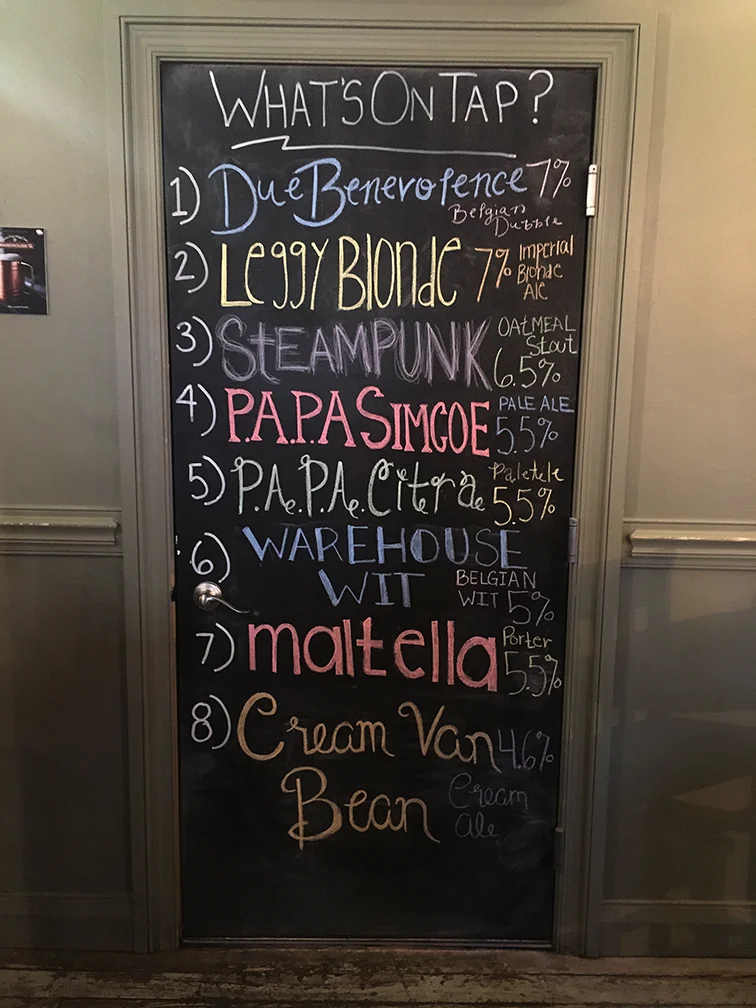 WHAT'S ON TAP?
1) Due Benevolence 7%
Belgian
Dubble
2) Leggy Blonde 7% Imperial
Blonde
Ale
3) STEAMPUNK OATMEAL
Stout
6.5%
4) P.A.P.A SIMCOE PALE ALE
5.5%
5) P.A.P.A. Citra Pale Ale
5.5%
6) WAREHOUSE
WIT BELGIAN
WIT 5%
7) maltella Porter
5.5%
8) Cream Van 4.6%
Bean Cream
ale